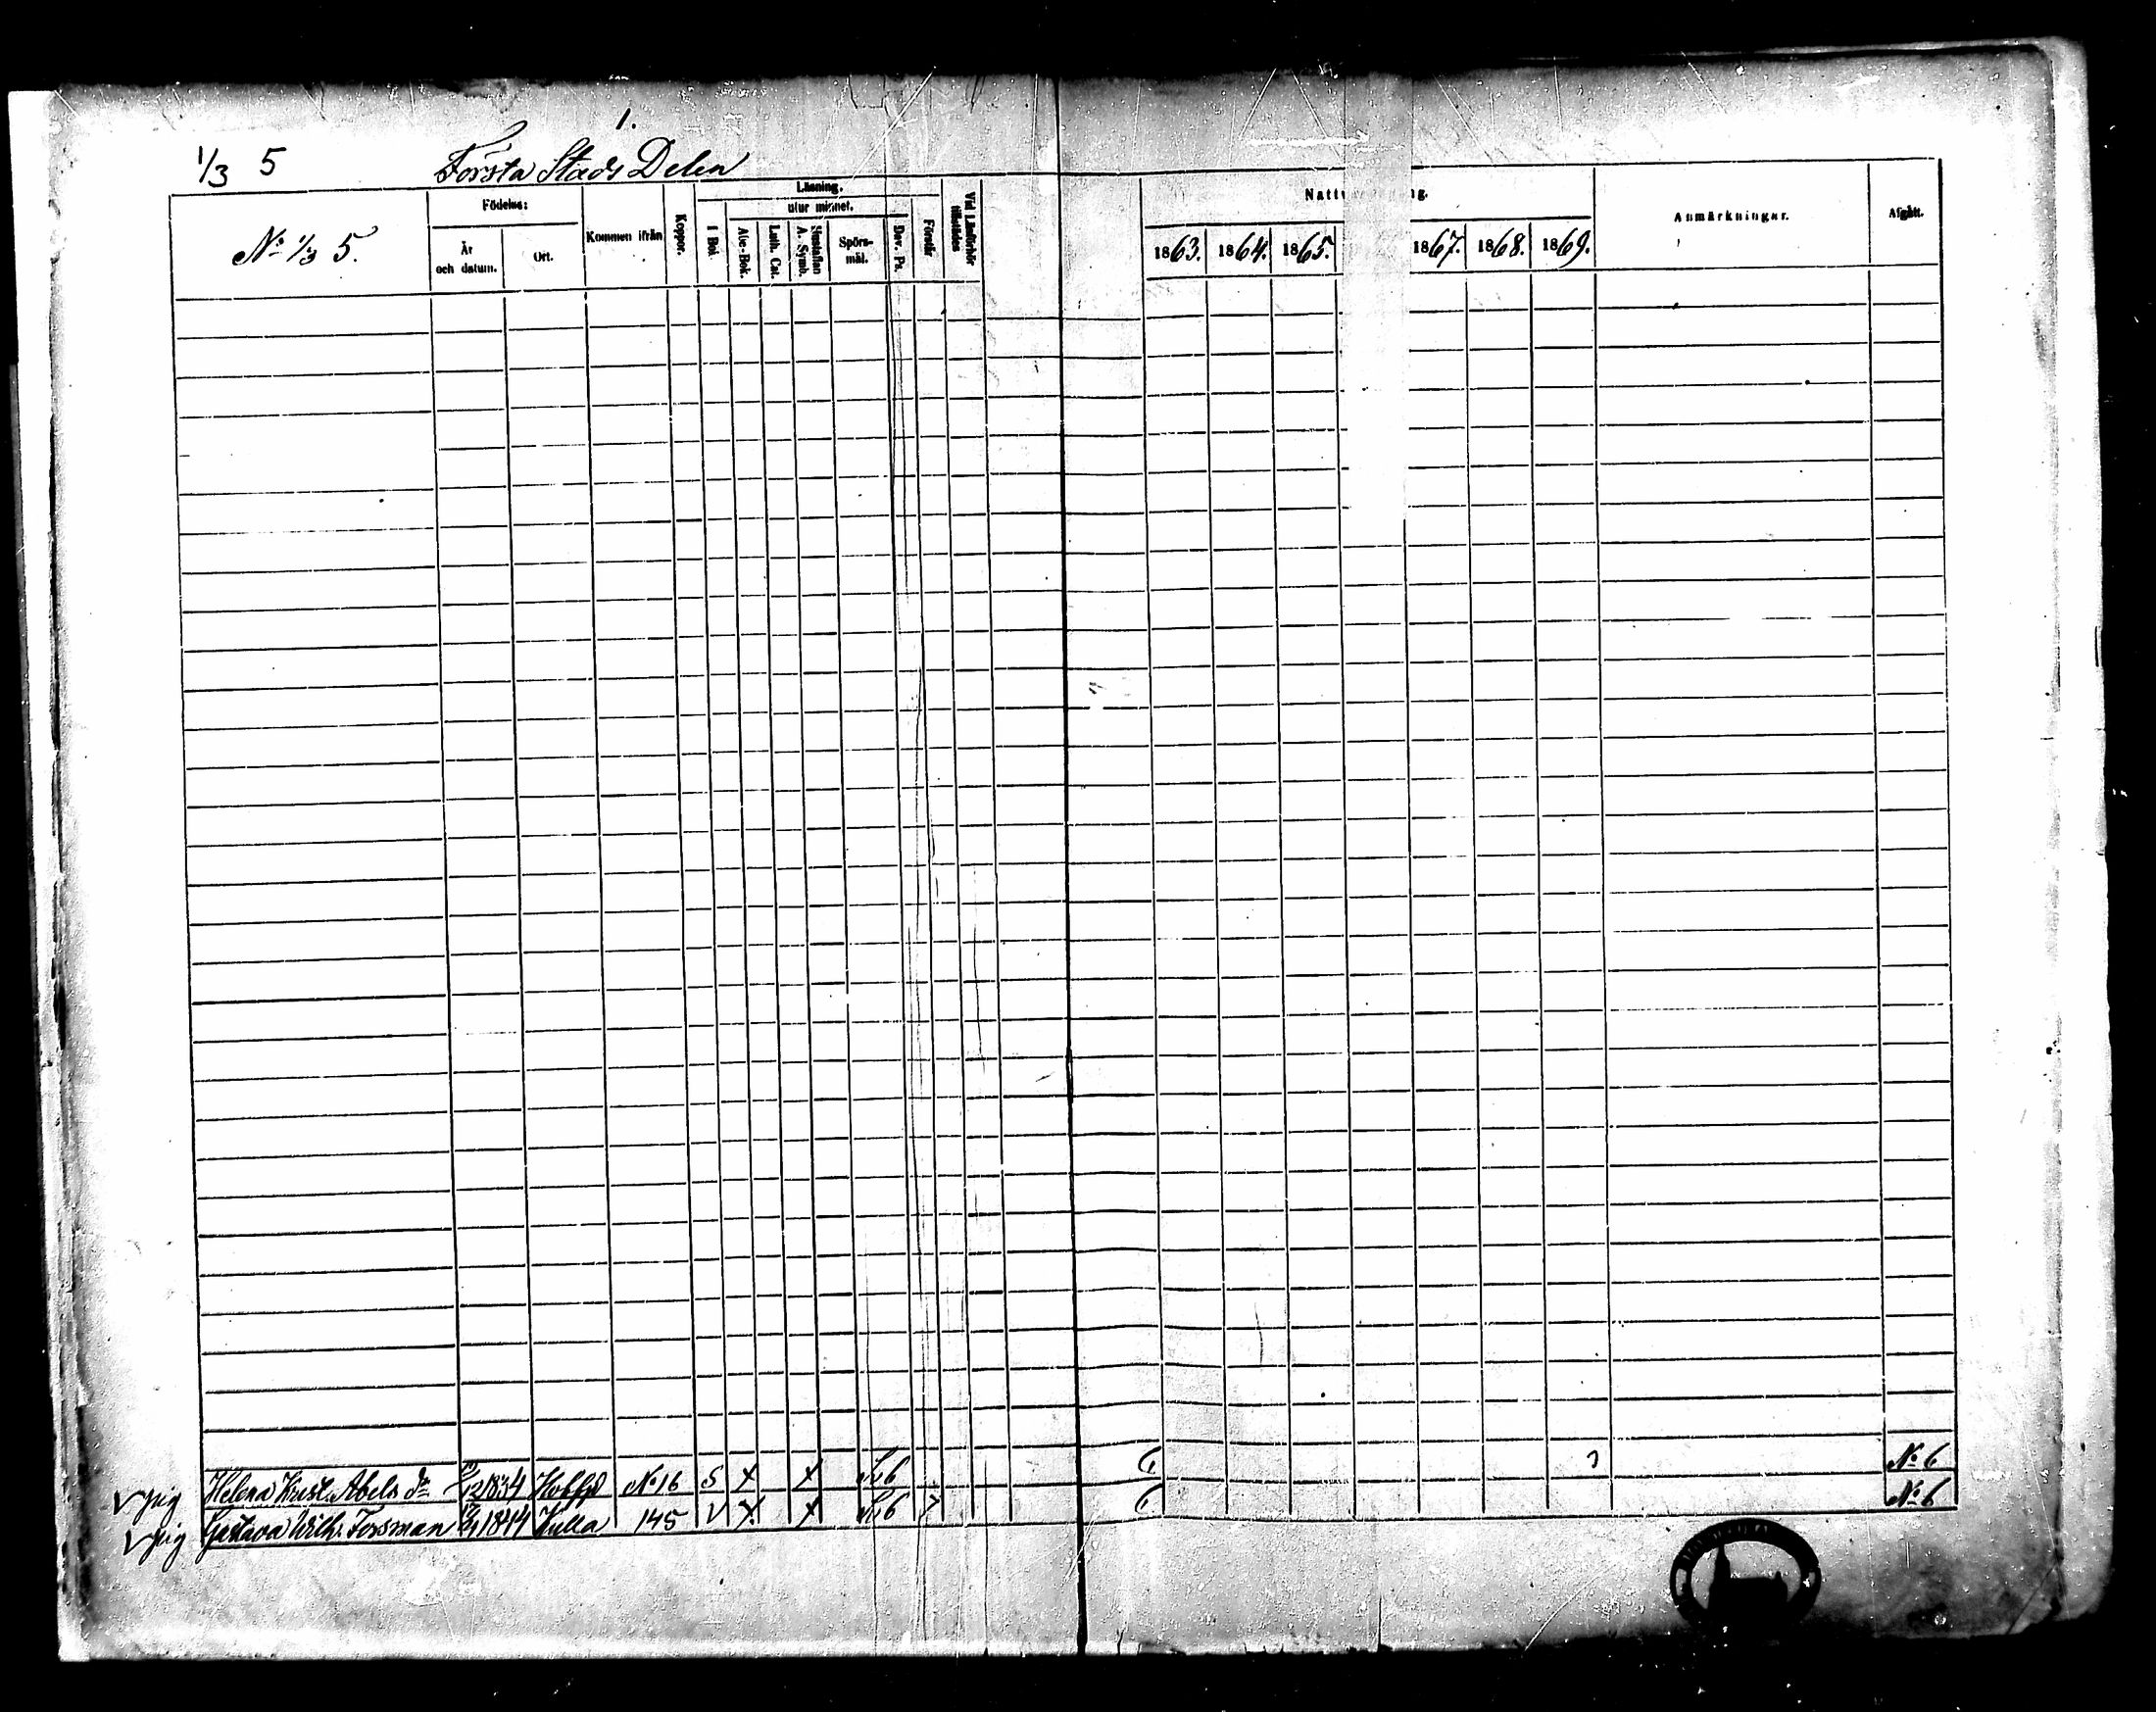 1.
1/3 5 Första Stads Delen
No 1/3 5.
Födelse:
År och datum.
Ort.
Kommen ifrån
Koppor.
Läsning.
I Bok.
utur minnet.
Abc-Bok.
Luth. Cat.
Hustaflan A. Symb.
Spörs-mål.
Dav. Ps.
Förstår
Vid Läsförhör tillstädes
Nattv ng.
1863. 1864. 1865. 1867. 1868. 1869.
Anmärkningar.
Afgått.
pig Helena Krist. Abels dr 1834 No 16 S x x No 6
pig Gustava Wilh. Forsman 1844 Kulla 145 V x x 7 No 6